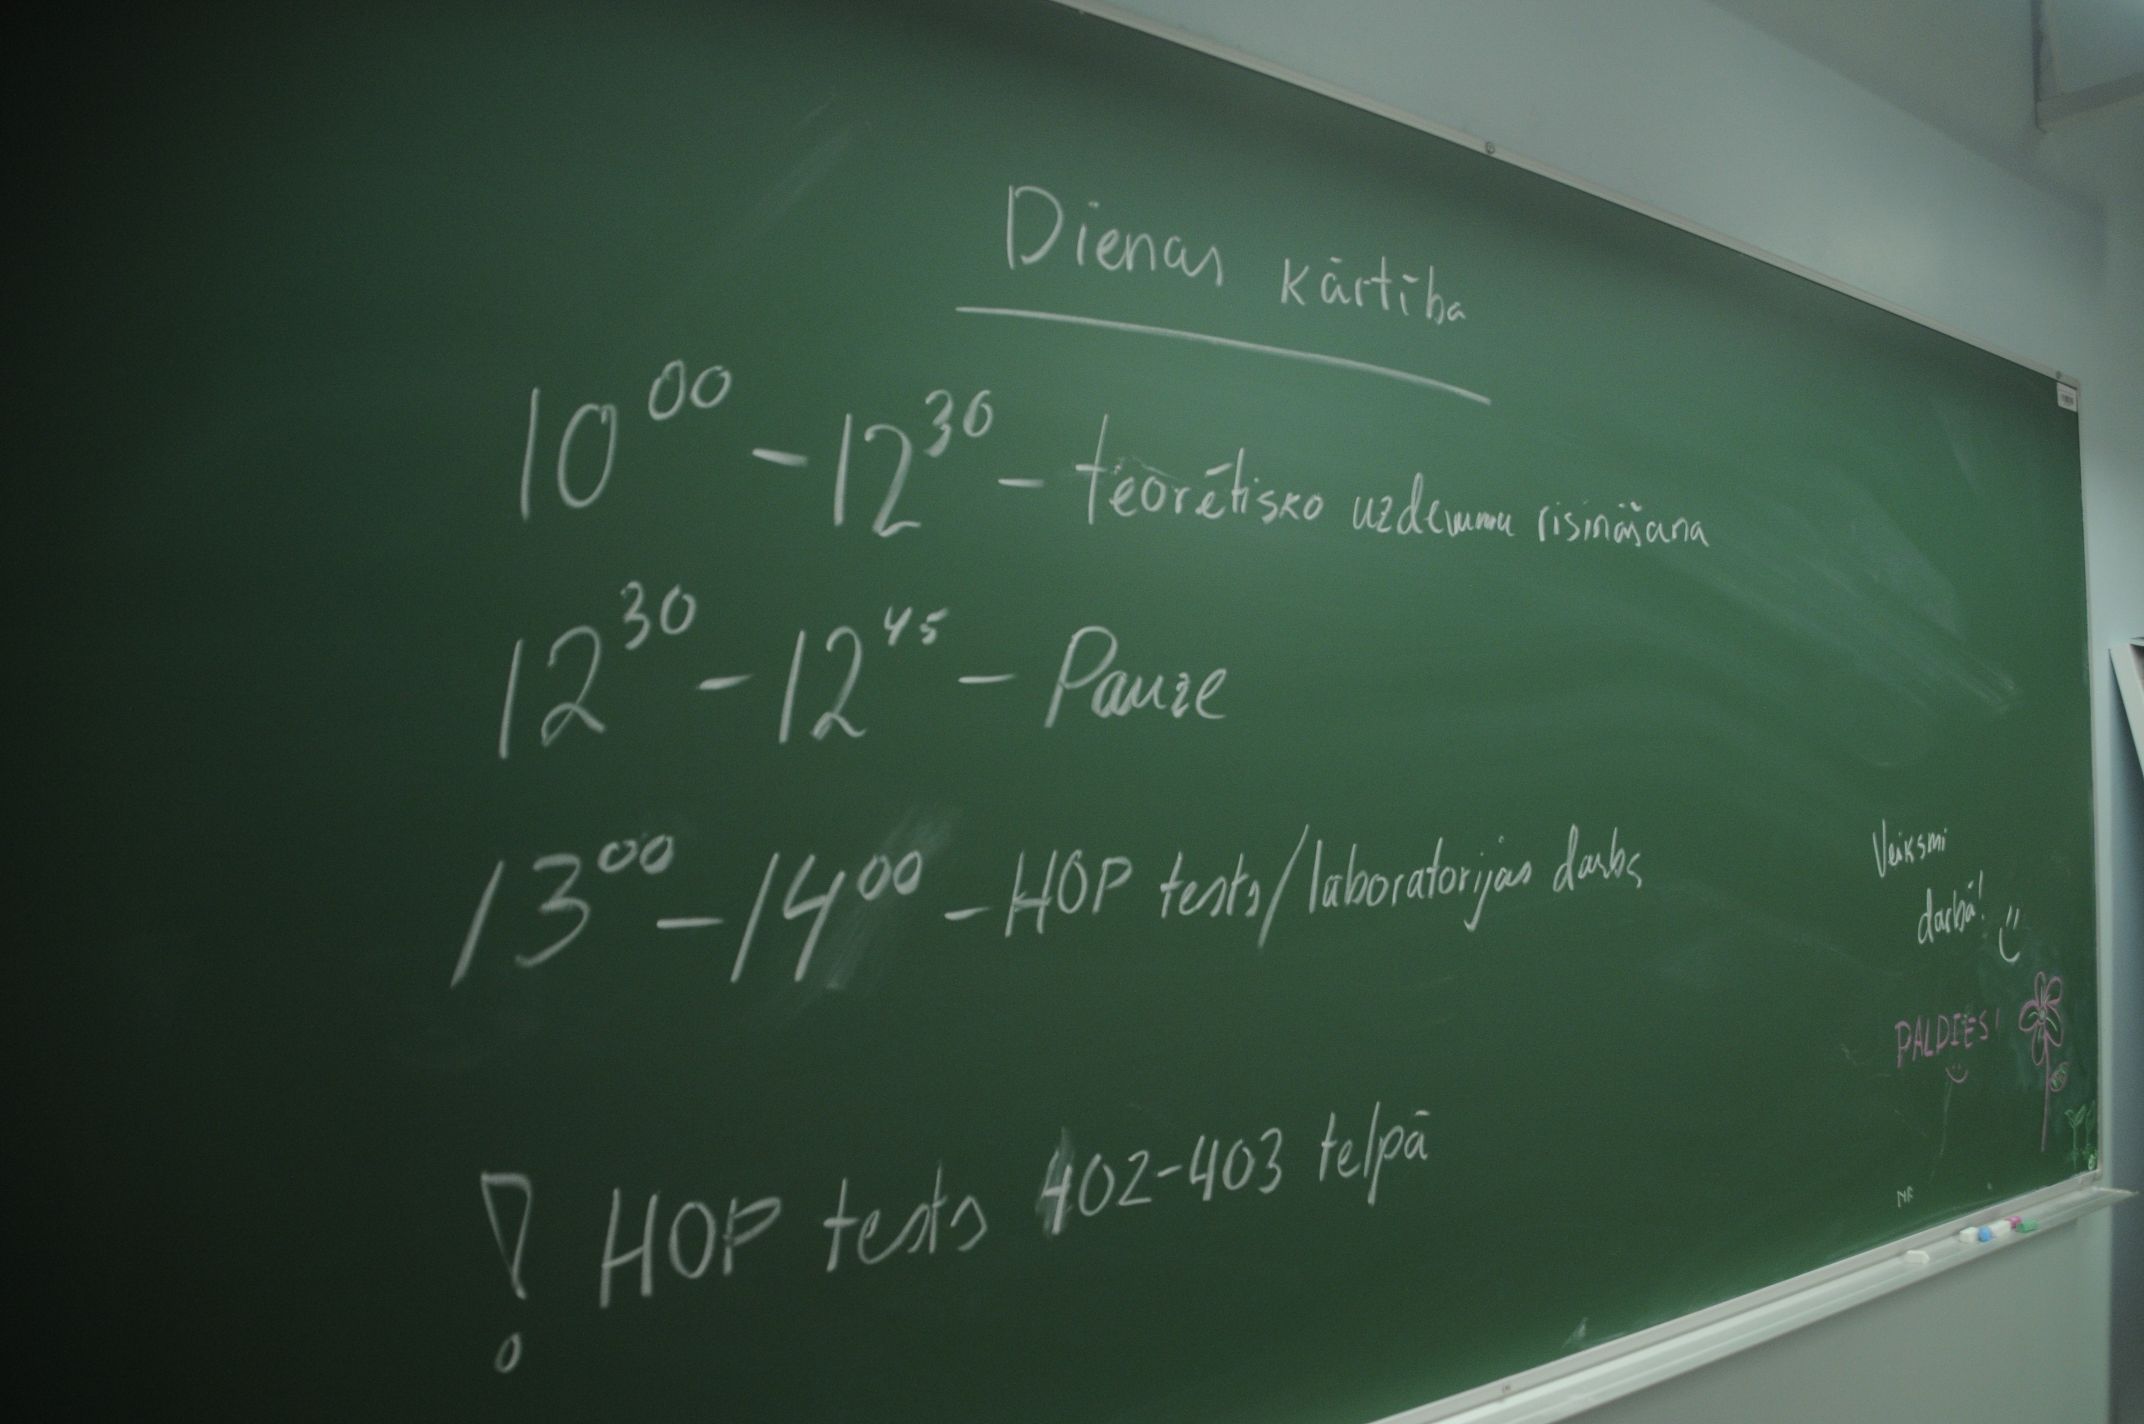 Dienas kārtība
10⁰⁰ - 12³⁰ - teorētisko uzdevumu risināšana
12³⁰ - 12⁴⁵ - Pauze
13⁰⁰ - 14⁰⁰ - HOP tests/laboratorijas darbs
! HOP tests 402-403 telpā
Veiksmi
darbā!
PALDIES!